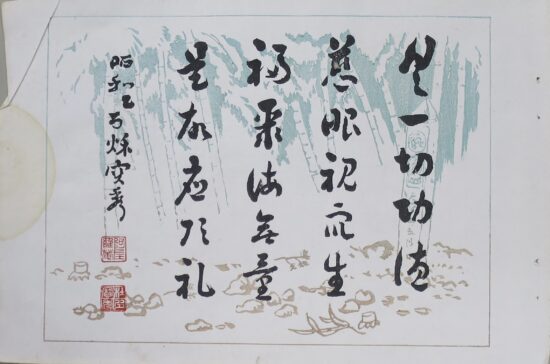 具一切功徳
慈眼視衆生
福聚海無量
是故應頂礼
昭和乙酉秋